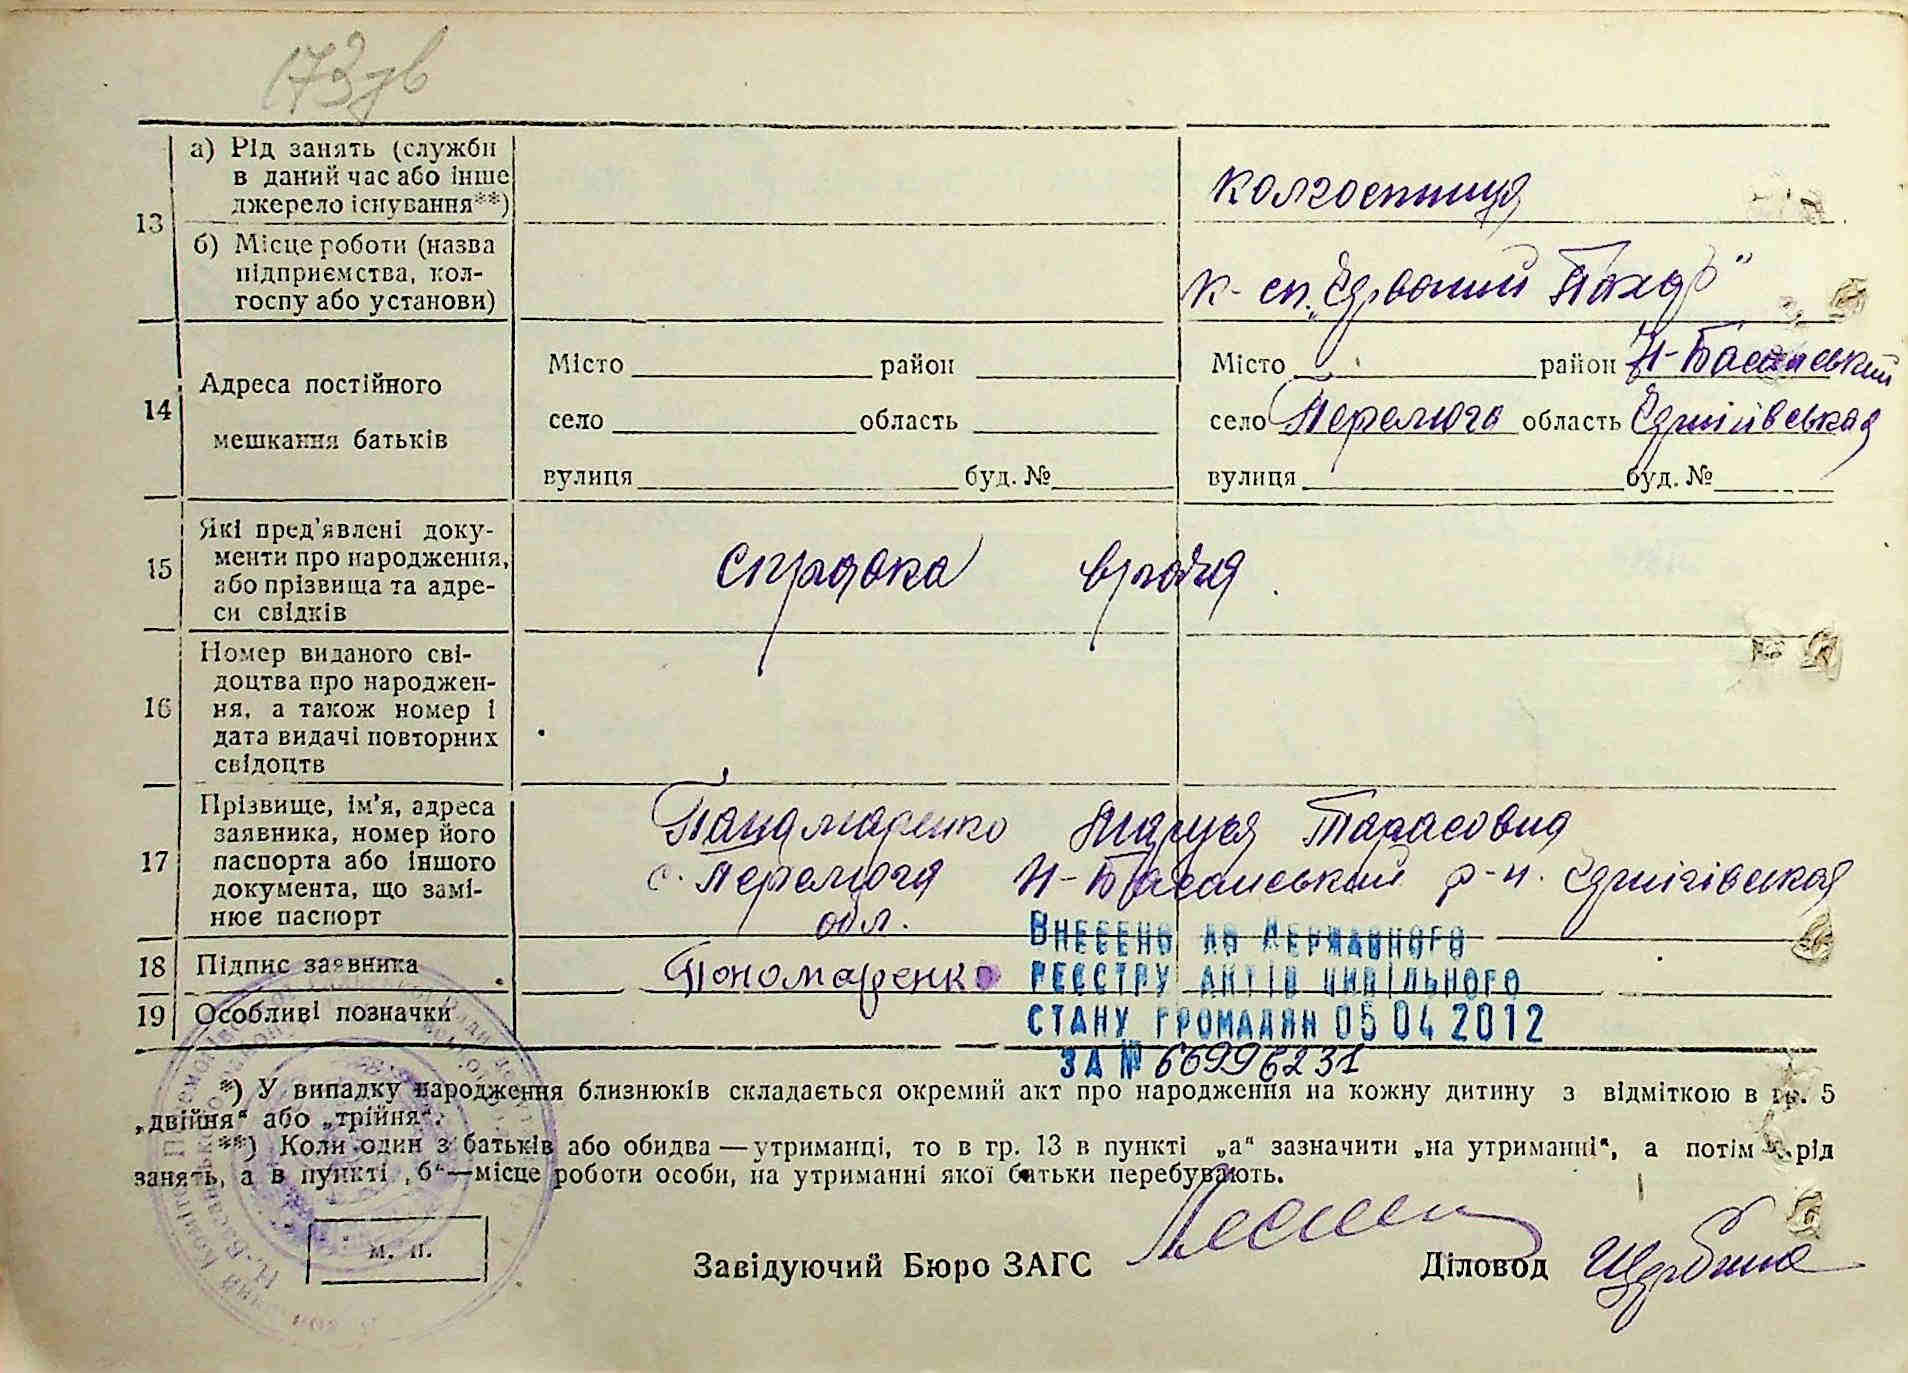 173 зв
13 а) Рід занять (служби в даний час або інше джерело існування**)
колгоспниця
б) Місце роботи (назва підприємства, колгоспу або установи)
к-сп. „Червоний Пахар"
14 Адреса постійного мешкання батьків
Місто район
село область
вулиця буд. №
Місто район Н-Басанський
село Перемога область Чернігівська
вулиця буд. №
15 Які пред'явлені документи про народження, або прізвища та адреси свідків
справка врача.
16 Номер виданого свідоцтва про народження, а також номер і дата видачі повторних свідоцтв
17 Прізвище, ім'я, адреса заявника, номер його паспорта або іншого документа, що замінює паспорт
Панамаренко Маруся Тарасовна
с. Перемога Н-Басанський р-н. Чернігівська
обл.
18 Підпис заявника
Пономаренко
19 Особливі позначки
Внесено до Державного
реєстру актів цивільного
стану громадян 05 04 2012
за № 66996231
*) У випадку народження близнюків складається окремий акт про народження на кожну дитину з відміткою в гр. 5
„двійня" або „трійня".
**) Коли один з батьків або обидва — утриманці, то в гр. 13 в пункті „а" зазначити „на утриманні", а потім рід
занять, а в пункті „б"—місце роботи особи, на утриманні якої батьки перебувають.
м. п.
Завідуючий Бюро ЗАГС
Діловод Щербина